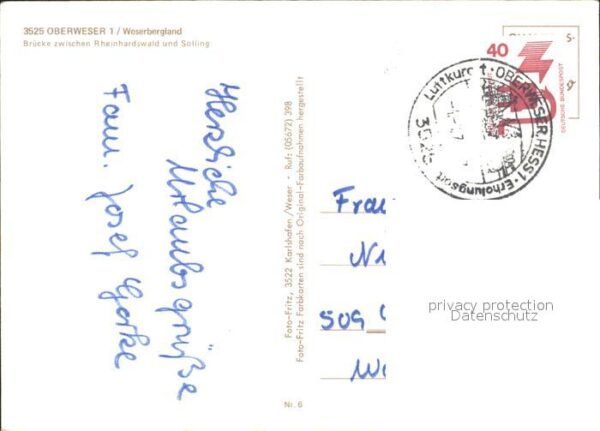 3525 OBERWESER 1 / Weserbergland
Brücke zwischen Rheinhardswald und Solling
Herzliche
Urlaubsgrüße
Fam. Josef Gerke
Foto-Fritz, 3522 Karlshafen/Weser · Ruf: (05672) 398
Foto-Fritz Farbkarten sind nach Original-Farbaufnahmen hergestellt
Nr. 6
40
DEUTSCHE BUNDESPOST
Luftkurort · OBERWESER, HESS 1 · Erholungsort
3525
Frau
509
privacy protection
Datenschutz